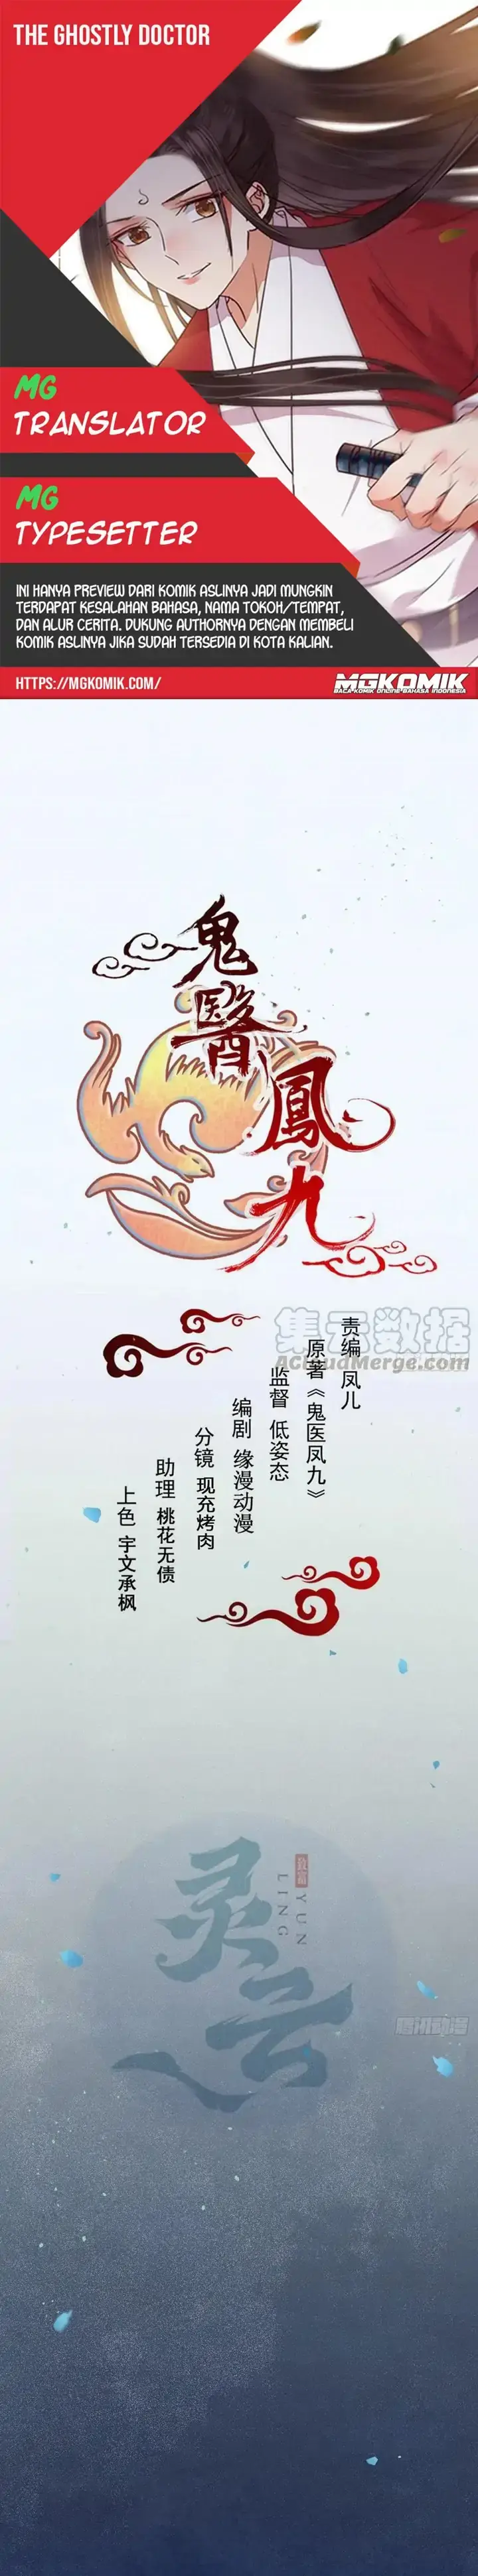 THE GHOSTLY DOCTOR
MG
TRANSLATOR
MG
TYPESETTER
INI HANYA PREVIEW DARI KOMIK ASLINYA JADI MUNGKIN
TERDAPAT KESALAHAN BAHASA, NAMA TOKOH/TEMPAT,
DAN ALUR CERITA. DUKUNG AUTHORNYA DENGAN MEMBELI
KOMIK ASLINYA JIKA SUDAH TERSEDIA DI KOTA KALIAN.
HTTPS://MGKOMIK.COM/
MGKOMIK
BACA KOMIK ONLINE BAHASA INDONESIA
鬼醫鳳九
集云数据
ACloudMerge.com
责编 凤儿
原著《鬼医凤九》
监督 低姿态
编剧 缘漫动漫
分镜 现充烤肉
助理 桃花无债
上色 宇文承枫
灵云
YUN
LING
腾讯动漫